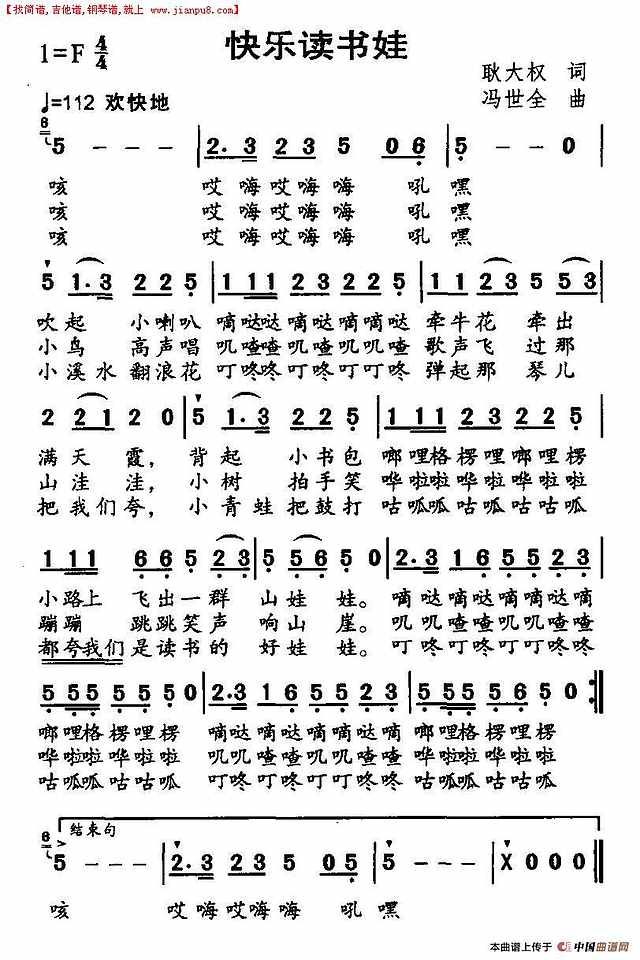 【找简谱,吉他谱,钢琴谱,就上 www.jianpu8.com】
快乐读书娃
1=F 4/4
耿大权 词
冯世全 曲
♩=112 欢快地
5 - - - | 2·3 2 3 5 0 6 | 5 - - 0 |
咳 哎嗨哎嗨嗨 吼嘿
咳 哎嗨哎嗨嗨 吼嘿
咳 哎嗨哎嗨嗨 吼嘿
5 1·3 2 2 5 | 1 1 1 2 3 2 2 5 | 1 1 2 5 5 3 |
吹起 小喇叭 嘀哒哒嘀哒嘀哒 牵牛花 牵出
小鸟 高声唱 叽喳喳叽喳叽喳 歌声飞 过那
小溪水翻浪花 叮咚咚叮咚叮咚 弹起那 琴儿
2 2 1 2 0 | 5 1·3 2 2 5 | 1 1 1 2 3 2 2 5 |
满天霞, 背起 小书包 啷哩格楞啷哩楞
山洼洼, 小树 拍手笑 哗啦啦哗啦哗啦
把我们夸, 小青蛙把鼓打 咕呱呱咕呱咕呱
1 1 1 6 6 5 2 3 | 5 5 6 5 0 | 2·3 1 6 5 5 2 3 |
小路上 飞出一群 山娃娃。 嘀哒嘀哒嘀哒嘀
蹦蹦 跳跳笑声 响山崖。 叽叽喳喳叽喳喳
都夸我们是读书的 好娃娃。 叮咚叮咚叮咚咚
5 5 5 5 5 5 0 | 2·3 1 6 5 5 2 3 | 5 5 5 5 6 5 0 :|
啷哩格楞哩楞 嘀哒嘀哒嘀哒嘀 啷哩格楞哩楞
哗啦啦哗啦啦 叽叽喳喳叽喳喳 哗啦啦哗啦啦
咕呱呱咕咕呱 叮咚叮咚叮咚咚 咕呱呱咕咕呱
结束句
5 - - - | 2·3 2 3 5 0 5 | 5 - - - | X 0 0 0 ‖
咳 哎嗨哎嗨嗨 吼嘿
本曲谱上传于 中国曲谱网